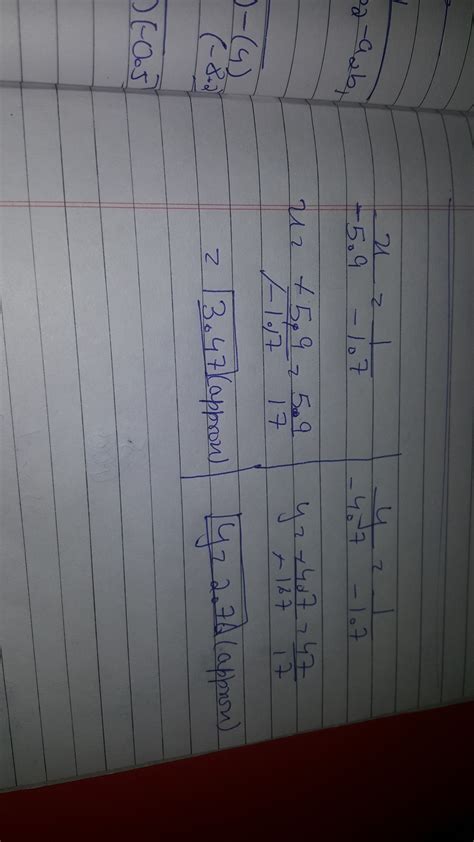 2 - a₂b₁
) - (4)
(-8.2)
) (-0.5
x/-5.9 = 1/-1.7
x = -5.9/-1.7 = 59/17
= 3.47 (approx)
y/-4.7 = 1/-1.7
y = -4.7/-1.7 = 47/17
y = 2.76 (approx)